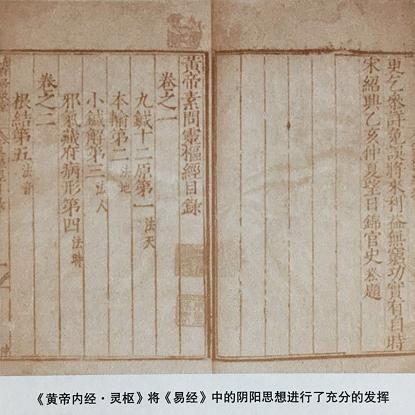 更乞參詳免誤將來利益無窮功實有自時
宋紹興乙亥仲夏望日錦官史崧題
黃帝素問靈樞經目錄
卷之一
九鍼十二原第一 法天
本輸第二 法地
小鍼解第三 法人
邪氣藏府病形第四 法時
卷之二
根結第五 法音
《黄帝内经·灵枢》将《易经》中的阴阳思想进行了充分的发挥